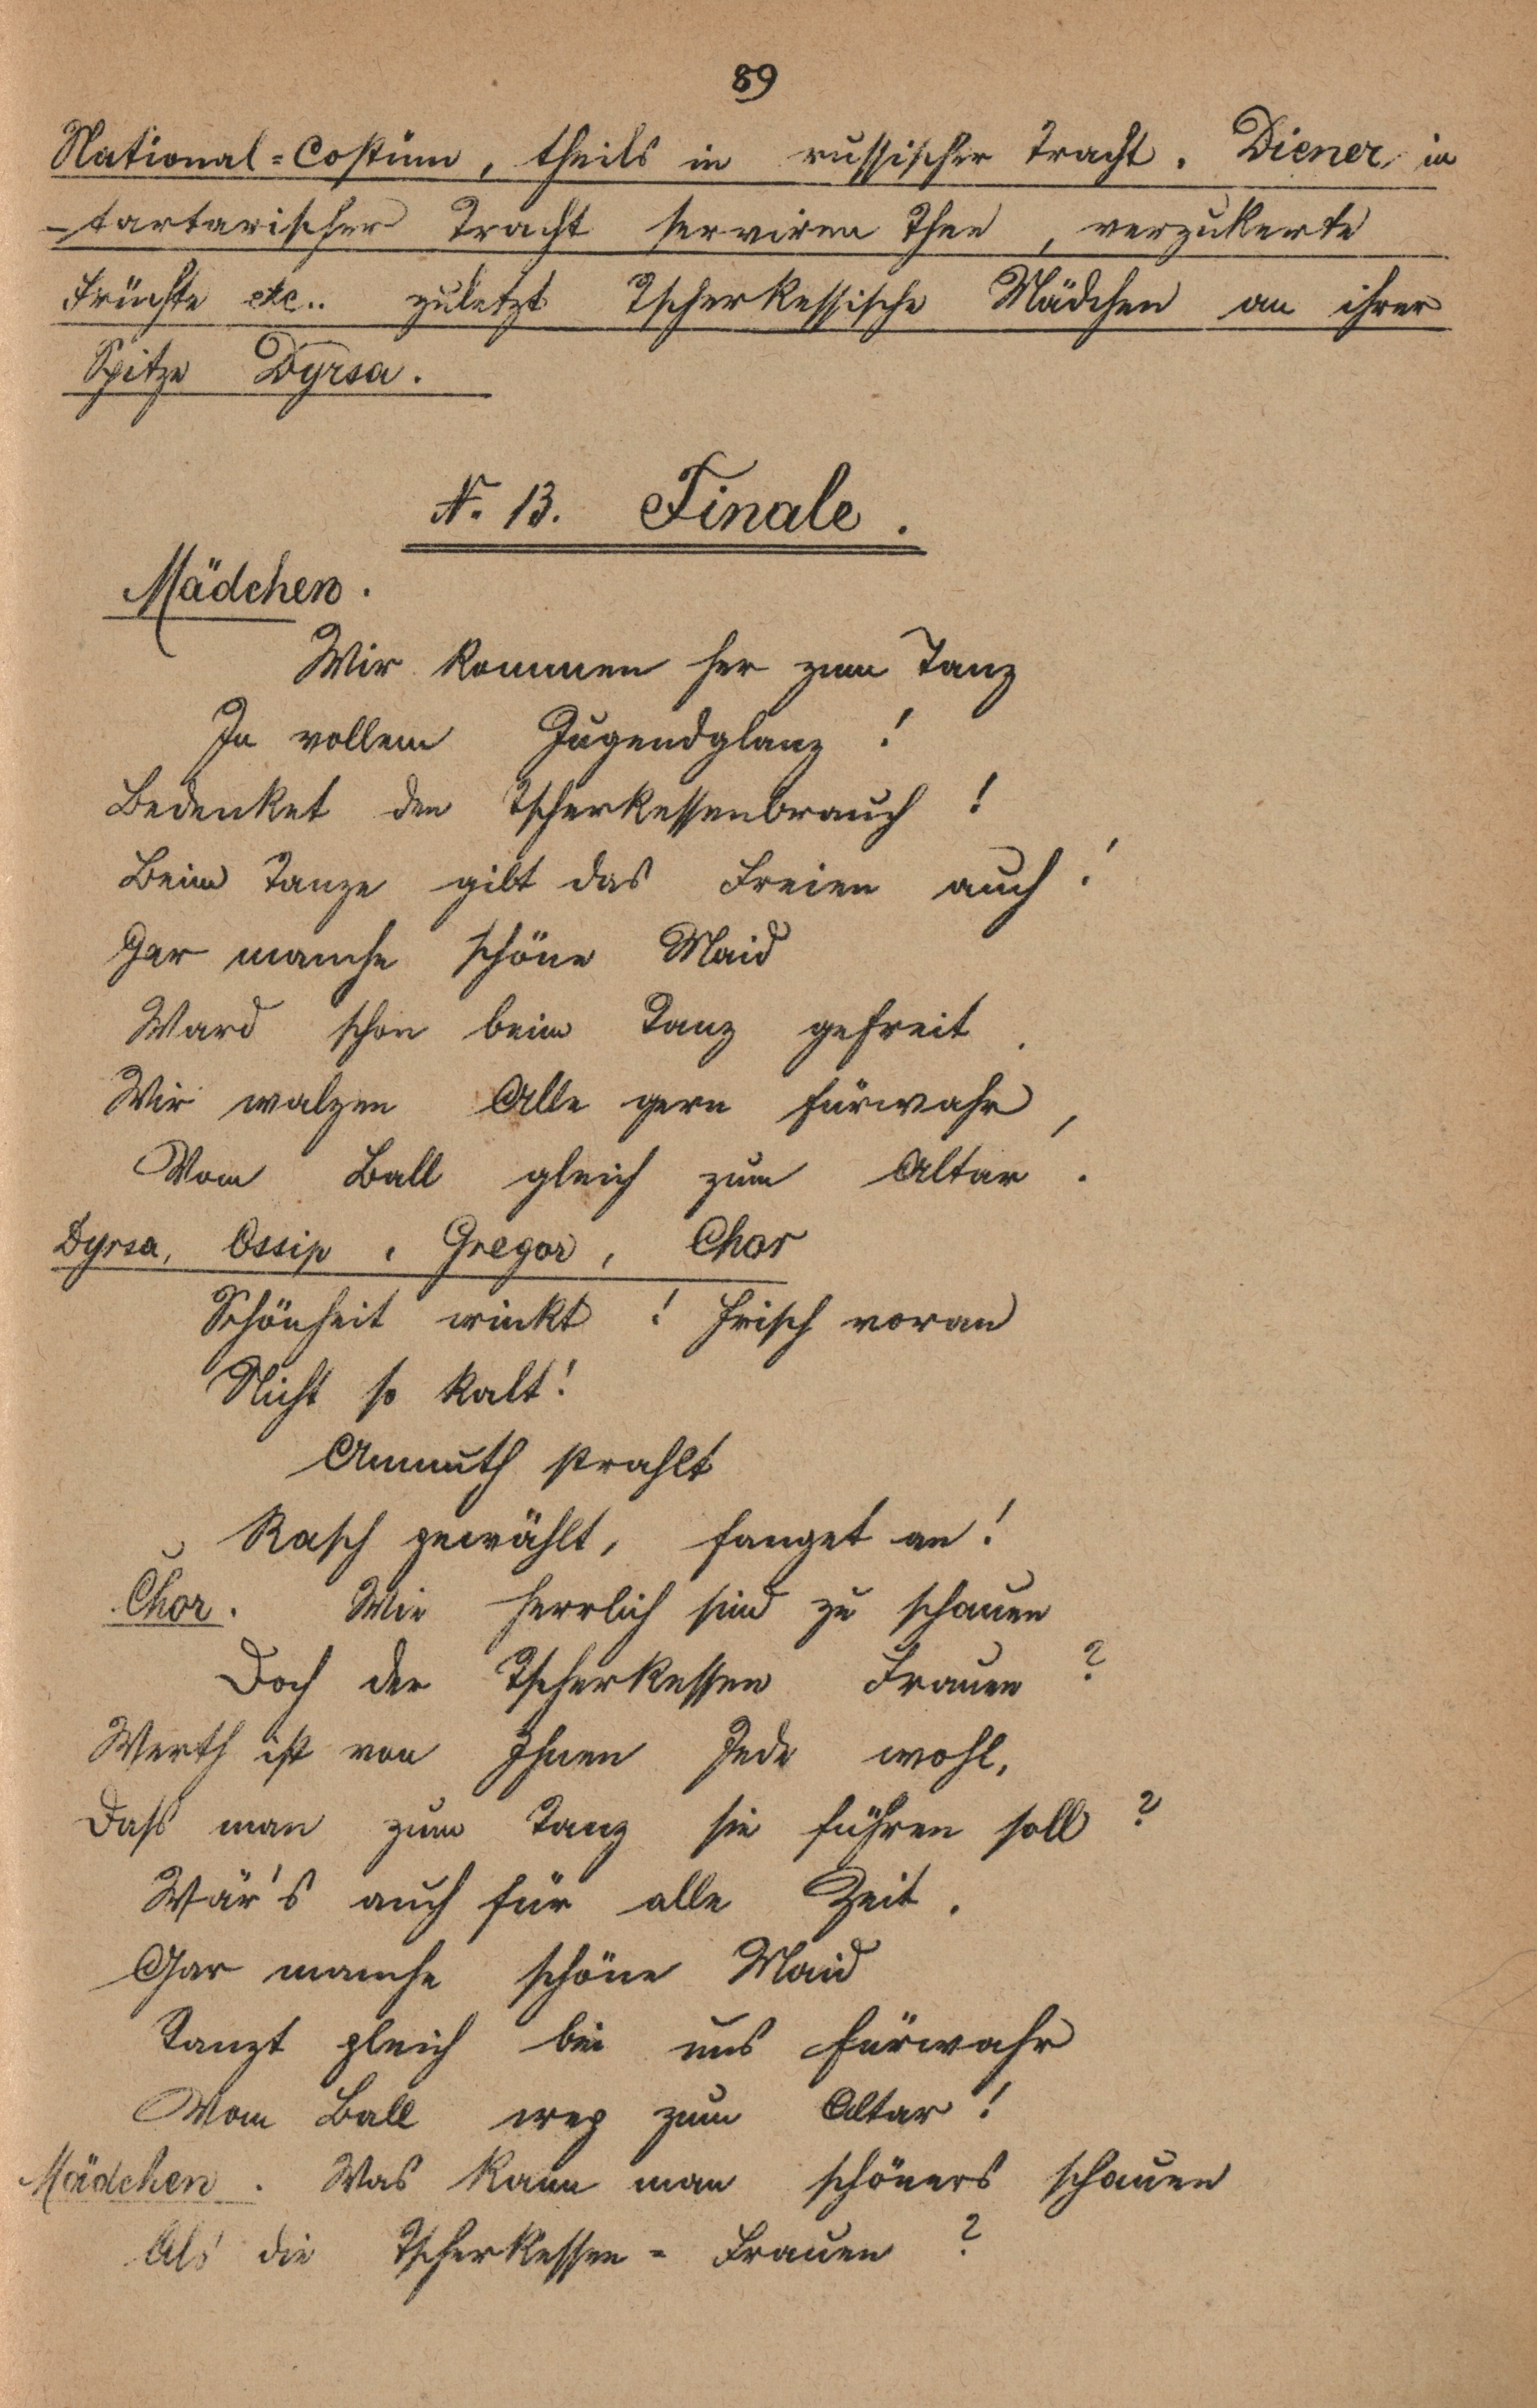 89
National=Costüm, theils in russischer Tracht. Diener in
tartarischer Tracht serviren Thee, verzukerte
Früchte etc.. zuletzt Tscherkessische Mädchen an ihrer
Spitze Dyrsa.
N. 13. Finale.
Mädchen.
Wir kommen her zum Tanz
In vollem Jugendglanz!
Bedenket den Tscherkessenbrauch!
Beim Tanze gilt das Freien auch!
Gar manche schöne Maid
Ward schon beim Tanz gefreit.
Wir walzen Alle gern fürwahr,
Vom Ball gleich zum Altar.
Dyrsa, Ossip, Gregor, Chor
Schönheit winkt! frisch voran
Nicht so kalt!
Anmuth strahlt
Rasch gewählt, fanget an!
Chor. Wie herrlich sind zu schauen
Doch der Tscherkessen Frauen?
Werth ist von Ihnen Jede wohl,
Dass man zum Tanz sie führen soll?
Wär's auch für alle Zeit.
Gar manche schöne Maid
Tanzt gleich bei uns fürwahr
Vom Ball weg zum Altar!
Mädchen. Was kann man schöners schauen
Als die Tscherkessen=Frauen?